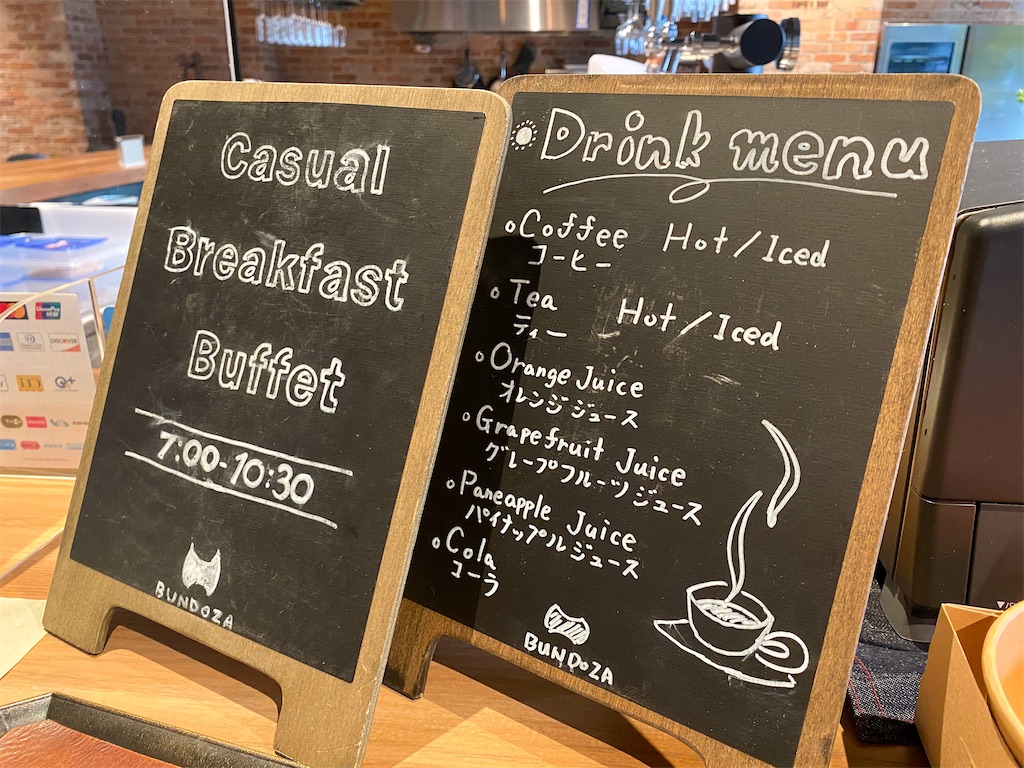 Casual
Breakfast
Buffet
7:00-10:30
BUNDOZA
Drink menu
Coffee Hot/Iced
コーヒー
Tea Hot/Iced
ティー
Orange Juice
オレンジジュース
Grapefruit Juice
グレープフルーツジュース
Paneapple Juice
パイナップルジュース
Cola
コーラ
BUNDOZA
DISCOVER
iD